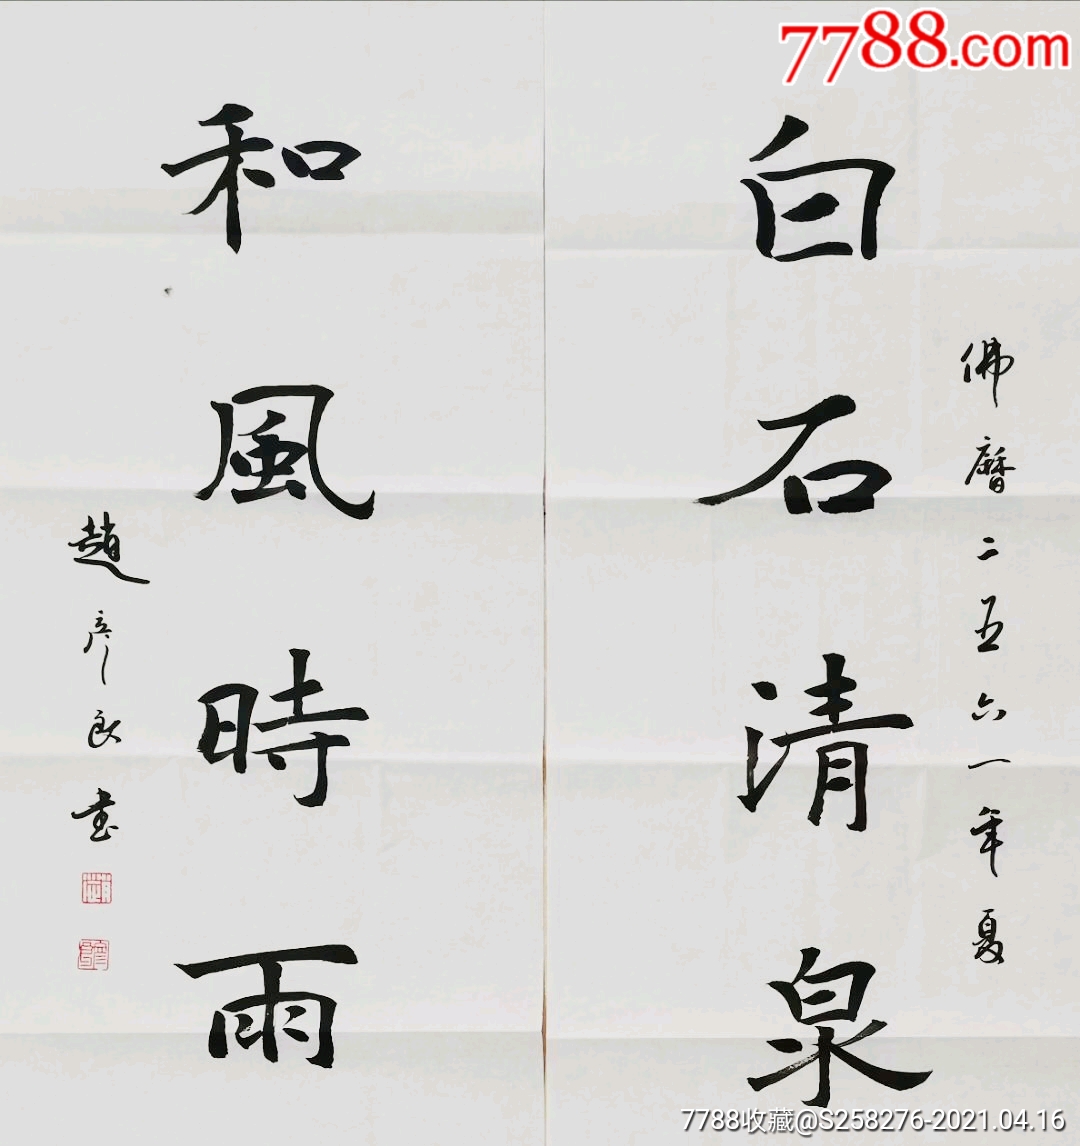 7788.com
佛曆二五六一年夏
白石清泉
和風時雨
趙彥良書
7788收藏@S258276-2021.04.16